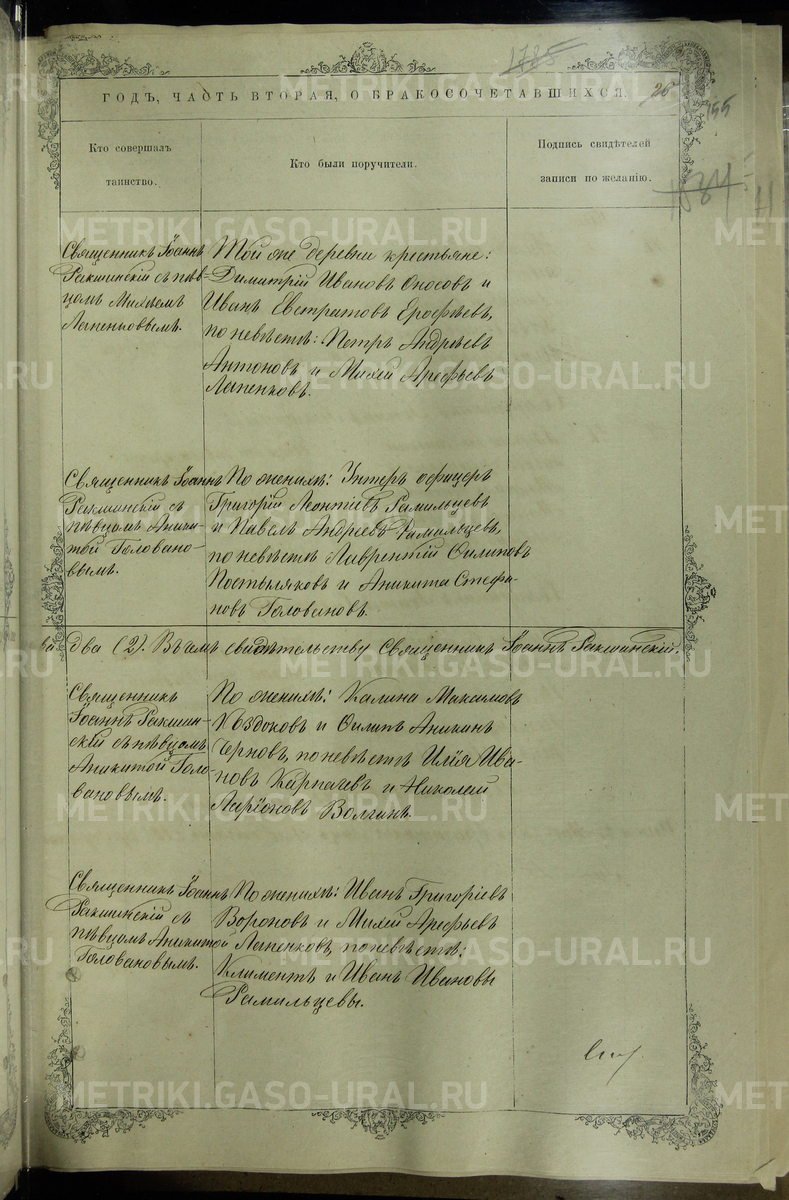 1785
ГОДЪ, ЧАСТЬ ВТОРАЯ, О БРАКОСОЧЕТАВШИХСЯ.
26
155
Кто совершалъ
таинство.
Кто были поручители.
Подпись свидѣтелей
записи по желанію.
Священникъ Іоаннъ
Ракшинскій съ пѣв-
цомъ Михеемъ
Лапенковымъ.
Той же деревни крестьяне:
Димитрій Ивановъ Оносовъ и
Иванъ Евстратовъ Ерофѣевъ,
по невѣстѣ: Петръ Андрѣевъ
Антоновъ и Михей Арефьевъ
Лапенковъ.
Священникъ Іоаннъ
Ракшинскій съ
пѣвцомъ Аники-
той Головано-
вымъ.
По женихѣ: Унтеръ офицеръ
Григорій Леонтіевъ Рамильцевъ
и Павелъ Андреевъ Рамильцевъ,
по невѣстѣ Лаврентій Филиповъ
Постыляковъ и Аникита Стефа-
новъ Головановъ.
два (2). Въ чемъ свидѣтельствую Священникъ Іоаннъ Ракшинскій.
Священникъ
Іоаннъ Ракшин-
скій съ пѣвцомъ
Аникитой Голо-
вановымъ.
По женихѣ: Калина Макаимовъ
и Филипъ Аникинъ
Черновъ, по невѣстѣ Илія Ива-
новъ Карпачевъ и Николай
Ларіоновъ Волгинъ.
Священникъ Іоаннъ
Ракшинскій съ
пѣвцомъ Аникитой
Головановымъ.
По женихѣ: Иванъ Григоріевъ
Вороновъ и Михей Арефьевъ
Лапенковъ, по невѣстѣ:
Климентъ и Иванъ Ивановы
Рамильцевы.
METRIKI.GASO-URAL.RU